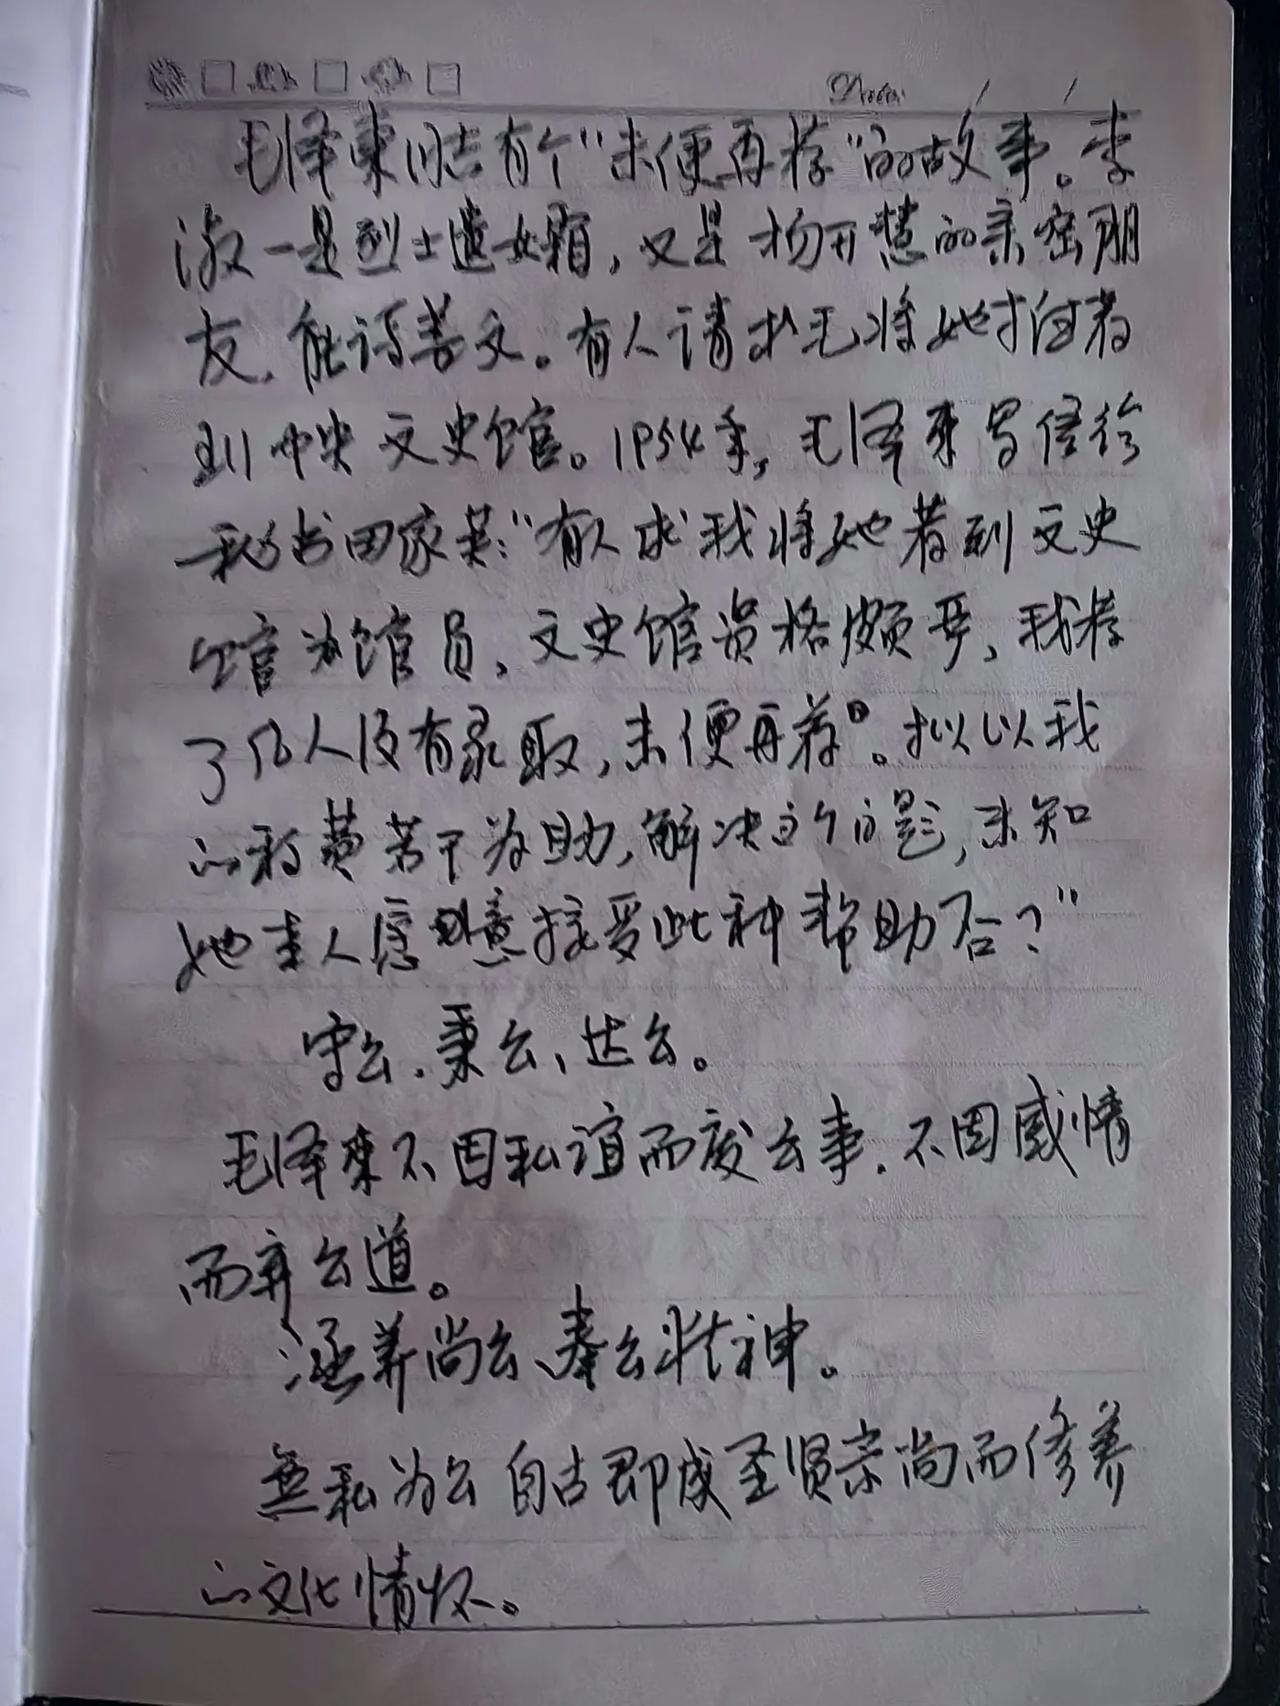 Date: / /
毛泽东同志有个"未便再荐"的故事。李
淑一是烈士遗孀，又是杨开慧的亲密朋
友，能诗善文。有人请求毛将她推荐
到中央文史馆。1954年，毛泽东写信给
秘书田家英："有人求我将她荐到文史
馆为馆员，文史馆资格颇严，我荐
了几人没有录取，未便再荐。拟以我
的稿费若干为助，解决这个问题，未知
她本人愿意接受此种帮助否？"
守公、秉公、达公。
毛泽东不因私谊而废公事，不因感情
而弃公道。
涵养尚公、奉公精神。
無私为公自古即成圣贤崇尚而修养
的文化情怀。